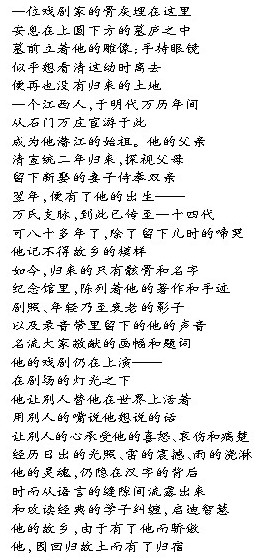 一位戏剧家的骨灰埋在这里
安息在上圆下方的墓庐之中
墓前立着他的雕像：手持眼镜
似乎想看清这幼时离去
便再也没有归来的土地
一个江西人，于明代万历年间
从石门万庄宦游于此
成为他潜江的始祖。他的父亲
清宣统二年归来，探视父母
留下新娶的妻子侍奉双亲
翌年，便有了他的出生——
万氏支脉，到此已传至一十四代
可八十多年了，除了留下儿时的啼哭
他记不得故乡的模样
如今，归来的只有骸骨和名字
纪念馆里，陈列着他的著作和手迹
剧照、年轻乃至衰老的影子
以及录音带里留下的他的声音
名流大家敬献的画幅和题词
他的戏剧仍在上演——
在剧场的灯光之下
他让别人替他在世界上活着
用别人的嘴说他想说的话
让别人的心承受他的喜怒、哀伤和痛楚
经历日出的光照、雷的震撼、雨的浇淋
他的灵魂，仍隐在汉字的背后
时而从语言的缝隙间流露出来
和攻读经典的学子纠缠，启迪智慧
他的故乡，由于有了他而骄傲
他，因回归故土而有了归宿